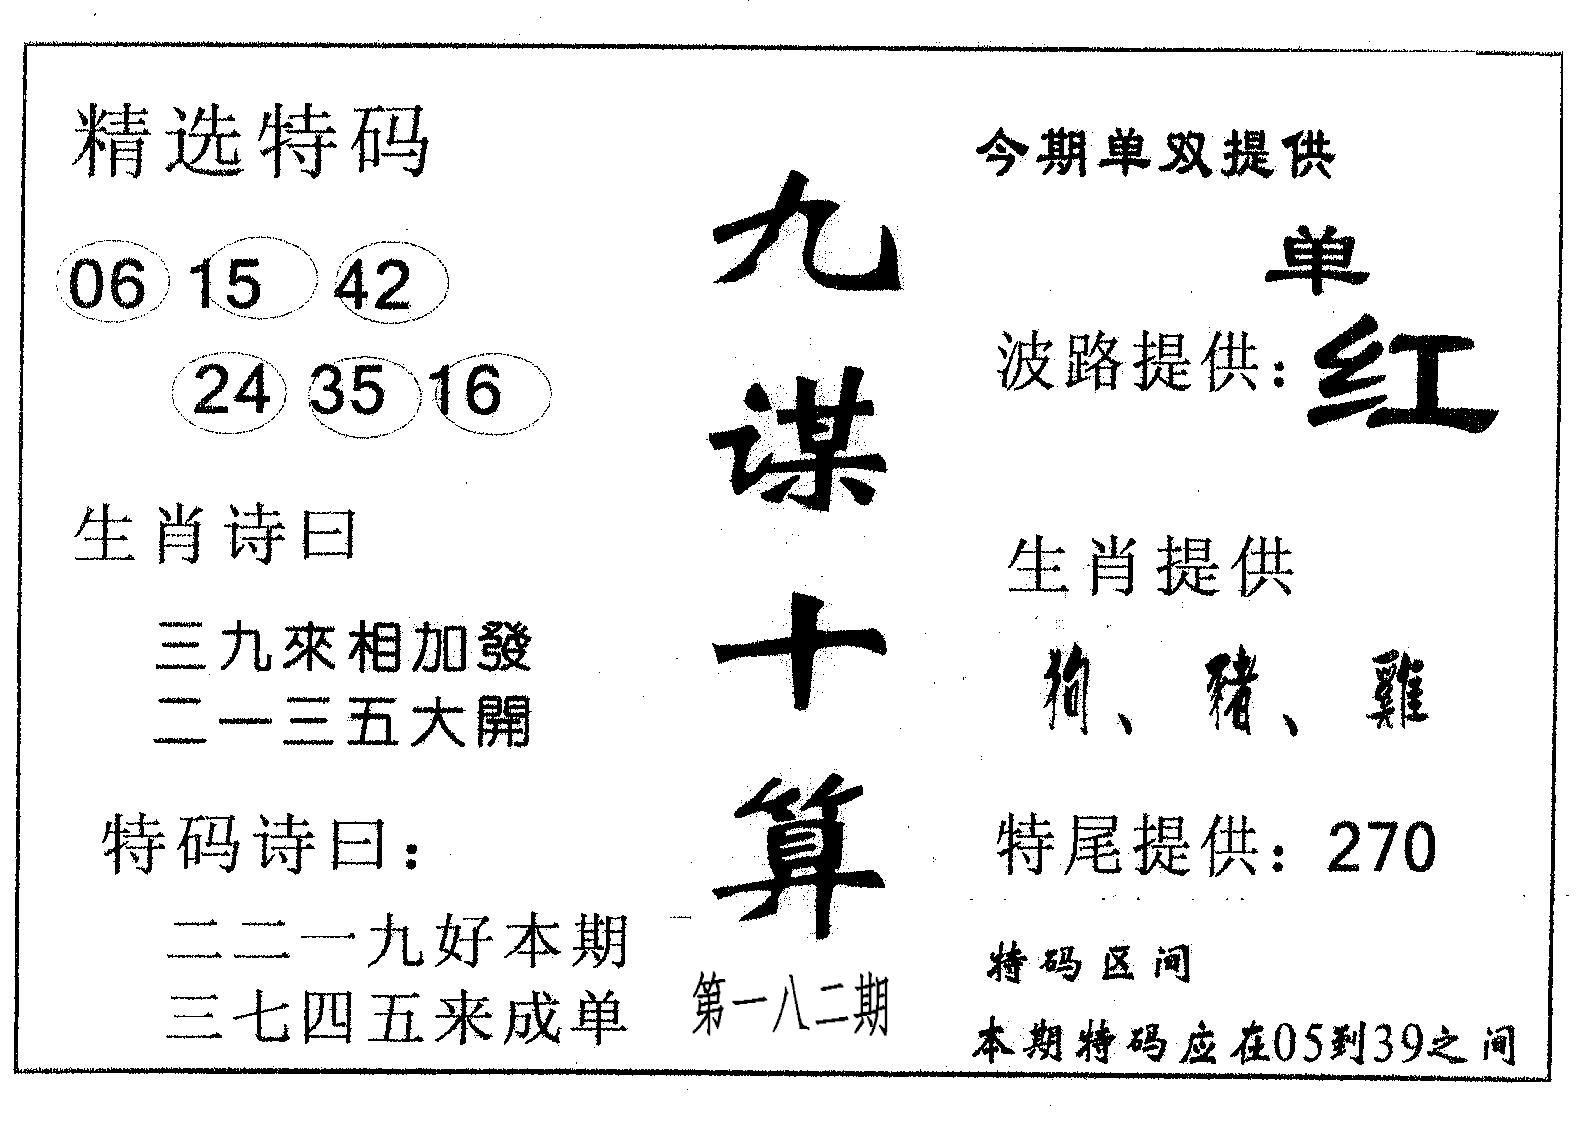 精选特码
06 15 42
24 35 16
生肖诗曰
三九來相加發
二一三五大開
特码诗曰：
二二一九好本期
三七四五来成单
九谋十算
第一八二期
今期单双提供
单
波路提供：红
生肖提供
狗、豬、雞
特尾提供：270
特码区间
本期特码应在05到39之间